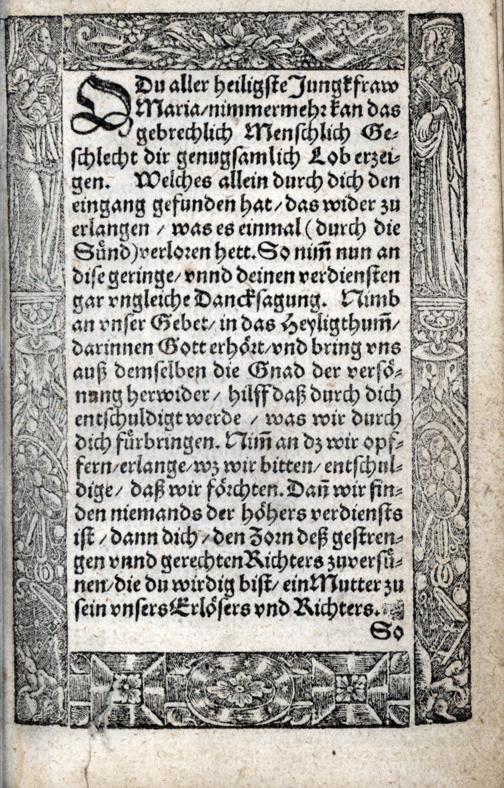 O Du aller heiligste Jungkfraw
Maria/nimmermehr kan das
gebrechlich Menschlich Ge⸗
schlecht dir genugsamlich Lob erzei⸗
gen. Welches allein durch dich den
eingang gefunden hat/das wider zu
erlangen / was es einmal (durch die
Suͤnd) verloren hett. So nim̃ nun an
dise geringe/ vnnd deinen verdiensten
gar vngleiche Dancksagung. Nimb
an vnser Gebet/ in das Heyligthum̃/
darinnen Gott erhoͤrt/vnd bring vns
auß demselben die Gnad der versoͤ⸗
nung herwider/ hilff daß durch dich
entschuldigt werde / was wir durch
dich fuͤrbringen. Nim̃ an dz wir opf⸗
fern/erlange/wz wir bitten/ entschul⸗
dige/ daß wir foͤrchten. Dan̄ wir fin⸗
den niemands der hoͤhers verdiensts
ist / dann dich / den Zorn deß gestren⸗
gen vnnd gerechten Richters zuversuͤ⸗
nen/die du wirdig bist/ ein Mutter zu
sein vnsers Erloͤsers vnd Richters.
So